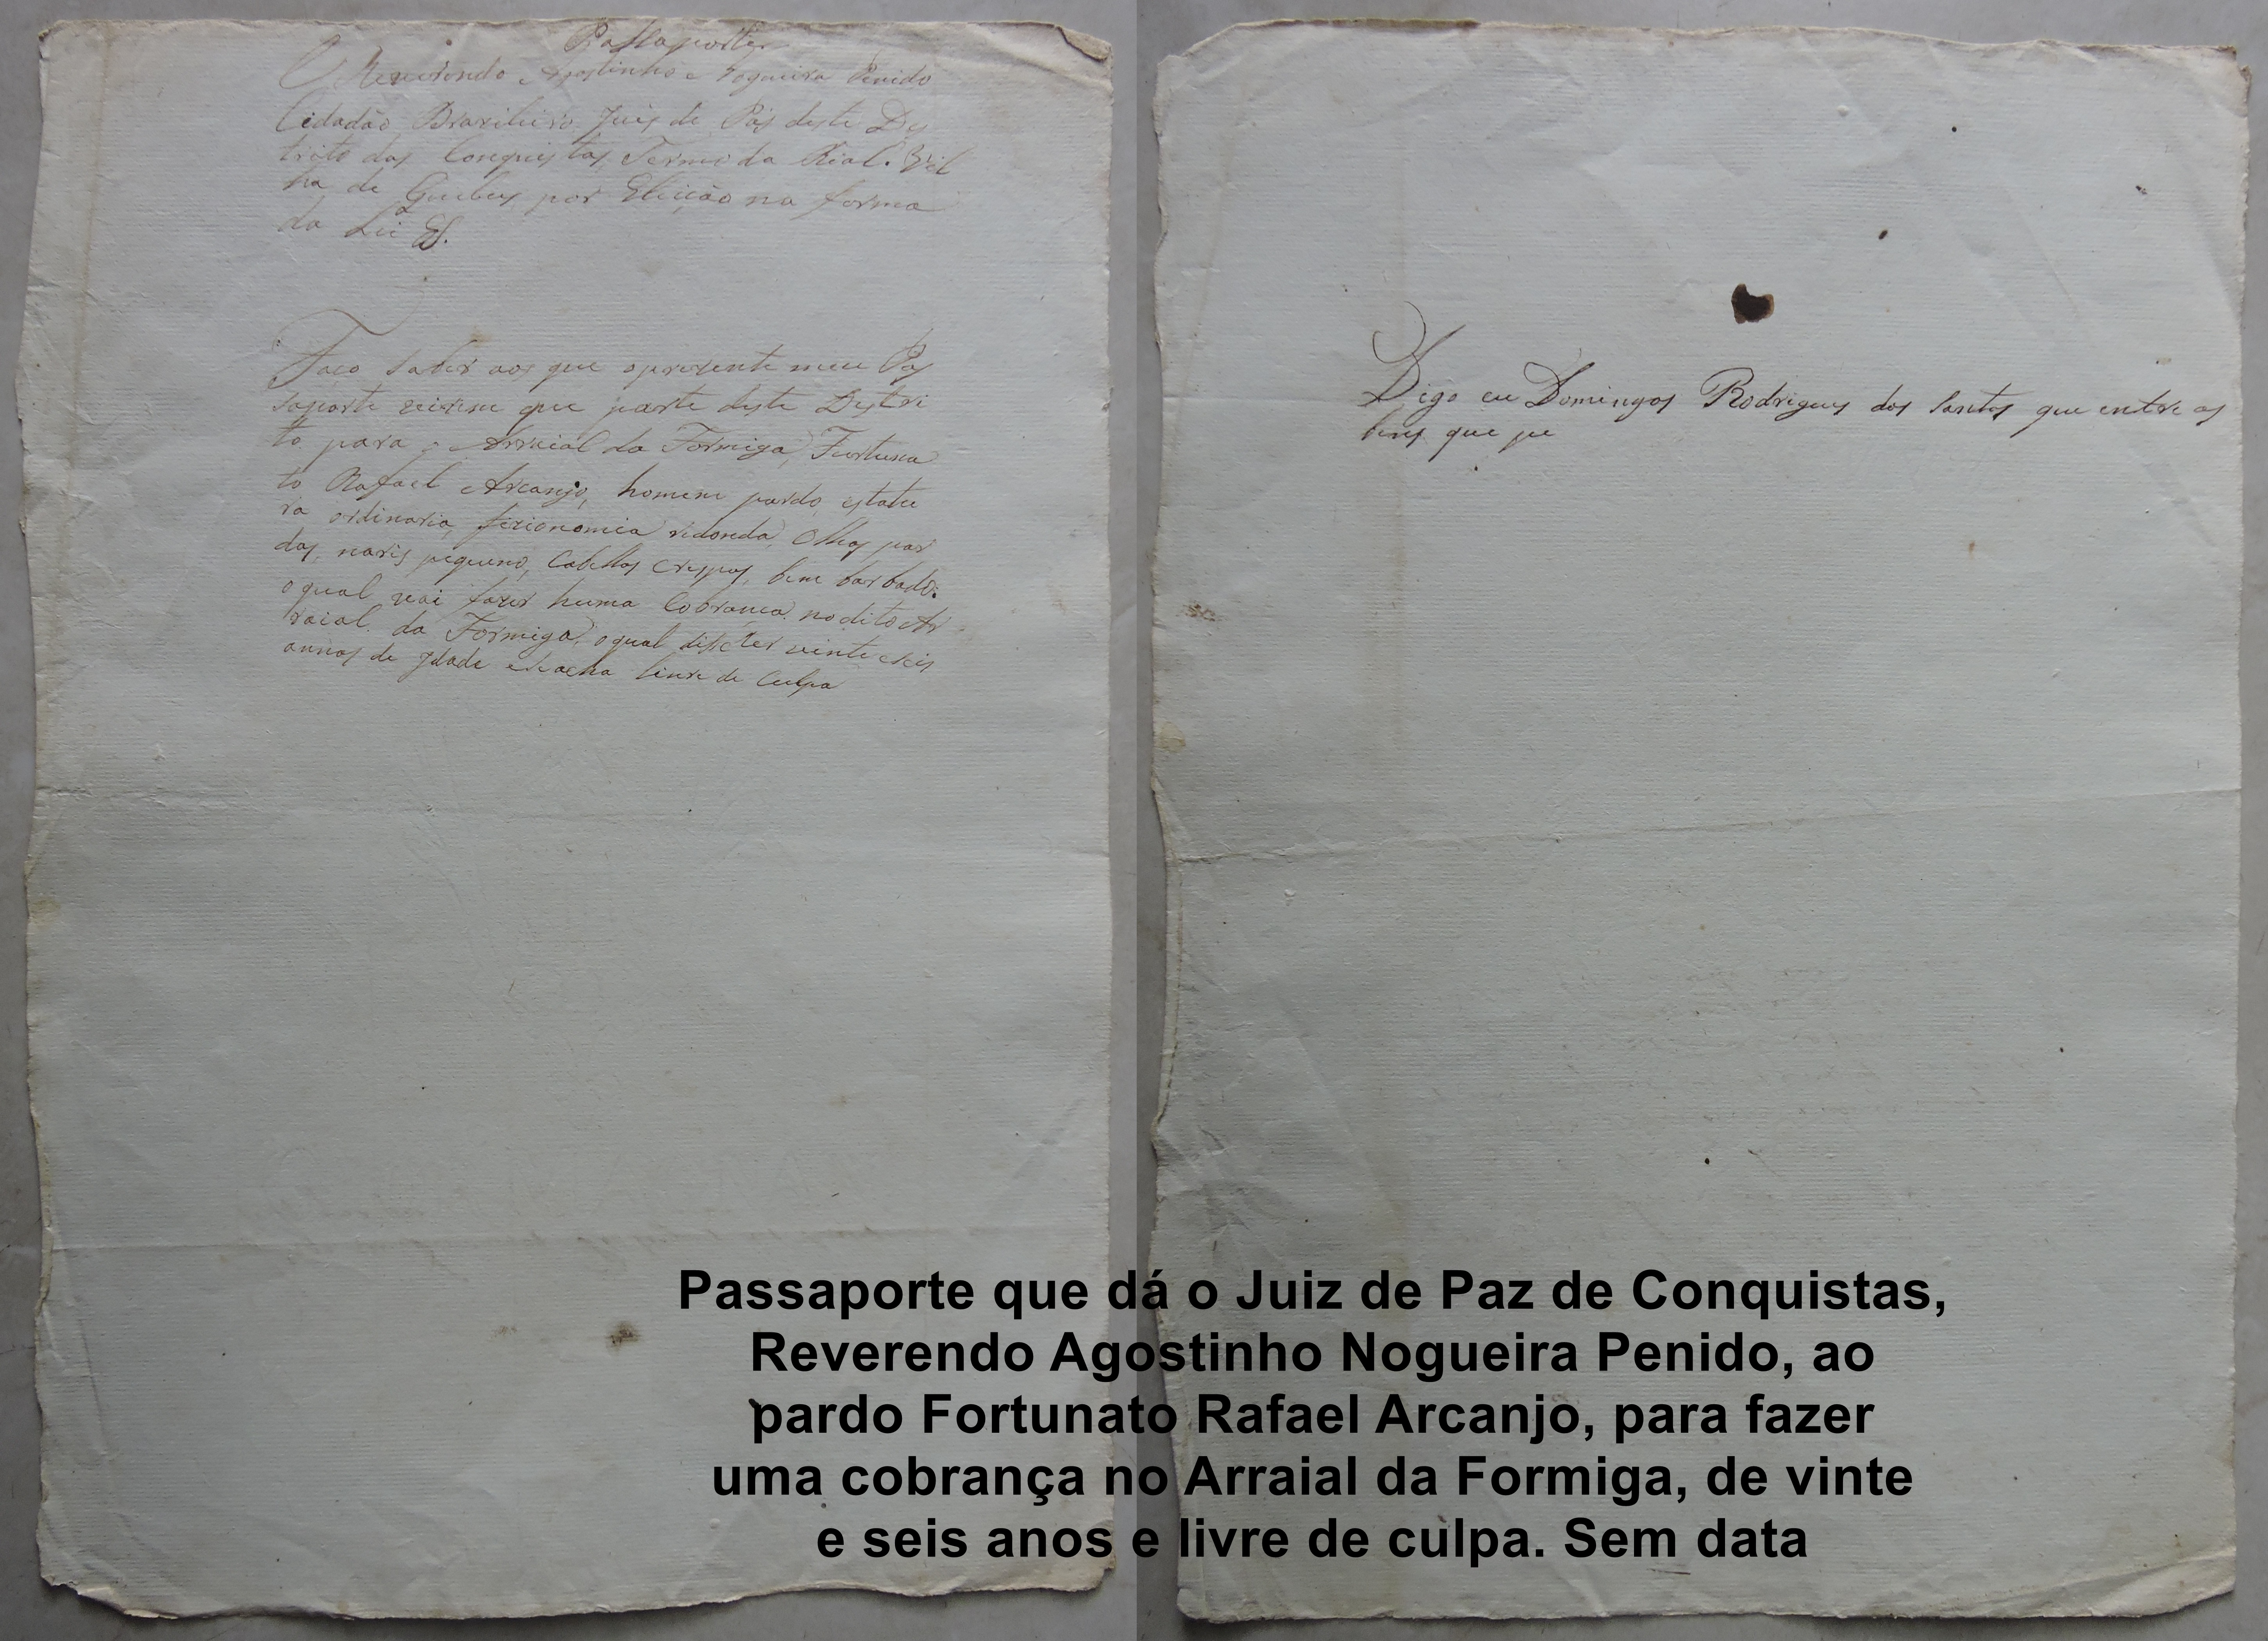 Passaporte.
O Reverendo Agostinho Nogueira Penido
Cidadão Brazileiro Juis de Pas deste Des
trito das Conquistas, Termo da Rial. Vil
la de Queluz por Eleição na forma
da Lei &.
Faço saber aos que o prezente meu Pas
saporte virem que parte deste Destri
to para o Arraial da Formiga, Fortuna
to Rafael Arcanjo, homem pardo, estatu
ra ordinaria, fizionomia redonda, Olhos par
dos, naris pequeno, Cabellos Crespos, bem barbado:
o qual vai fazer huma Cobranca no dito Ar
raial da Formiga, o qual disse ter vinte e seis
annos de Idade e se acha livre de Culpa
Digo eu Domingos Rodrigues dos Santos que entre os
bens que pe
Passaporte que dá o Juiz de Paz de Conquistas,
Reverendo Agostinho Nogueira Penido, ao
pardo Fortunato Rafael Arcanjo, para fazer
uma cobrança no Arraial da Formiga, de vinte
e seis anos e livre de culpa. Sem data